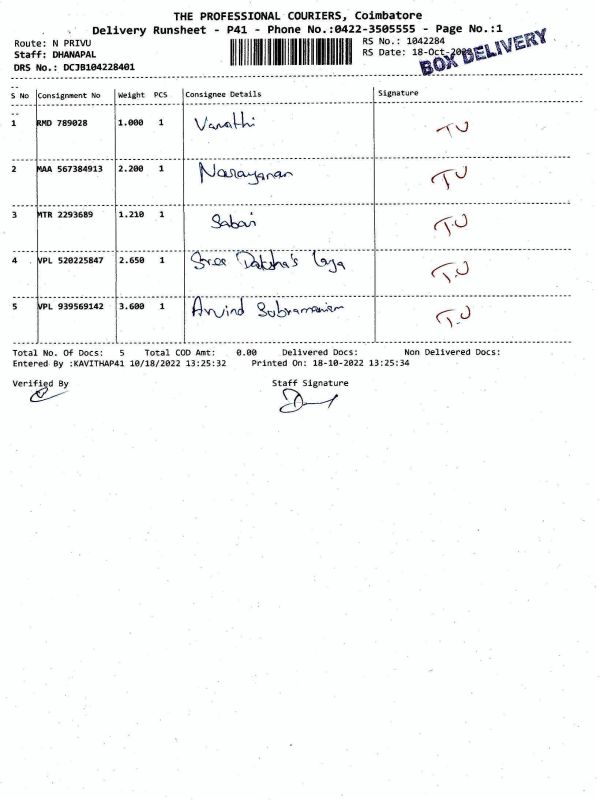 THE PROFESSIONAL COURIERS, Coimbatore
Delivery Runsheet - P41 - Phone No.:0422-3505555 - Page No.:1
Route: N PRIVU RS No.: 1042284
Staff: DHANAPAL RS Date: 18-Oct-2022
DRS No.: DCJB104228401 BOX DELIVERY
S No Consignment No Weight PCS Consignee Details Signature
1 RMD 789028 1.000 1 Vanathi TU
2 MAA 567384913 2.200 1 Narayanan TU
3 MTR 2293689 1.210 1 Sabari T.U
4 VPL 520225847 2.650 1 Sree Daksha's T.U
5 VPL 939569142 3.600 1 Arvind Subramaniam T.U
Total No. Of Docs: 5 Total COD Amt: 0.00 Delivered Docs: Non Delivered Docs:
Entered By :KAVITHAP41 10/18/2022 13:25:32 Printed On: 18-10-2022 13:25:34
Verified By Staff Signature